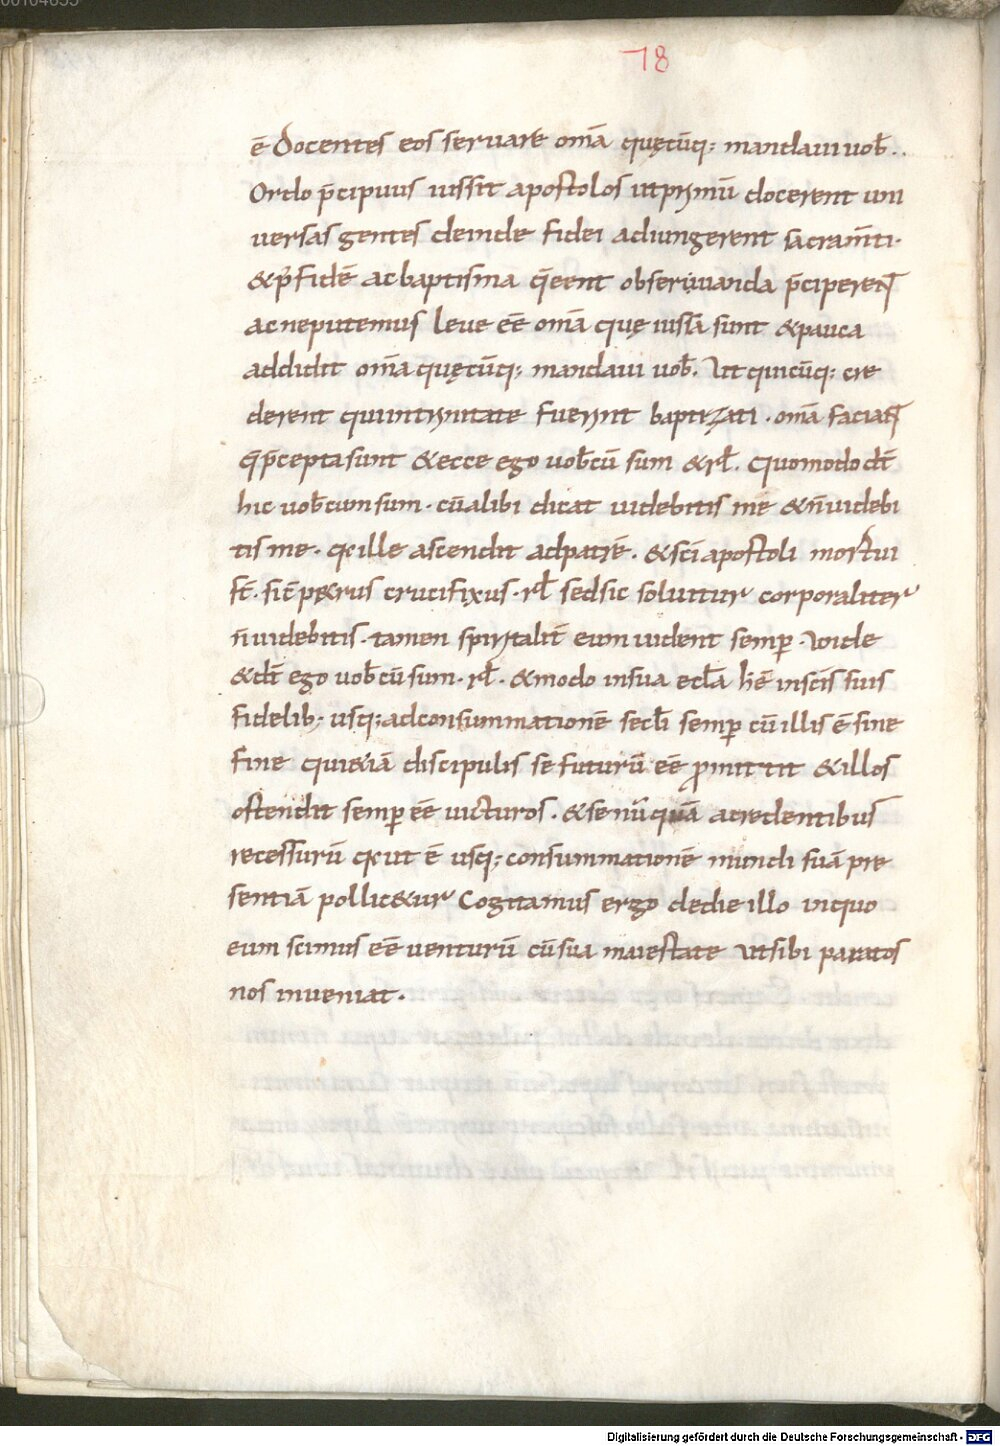 78
ē docentes eos seruare om̄a quęcūq; mandaui uob̄..
Ordo p̄cipuus iussit apostolos ut primū docerent uni
uersas gentes deinde fidei adiungerent sacram̄ti.
& p̄ fidē ac baptisma q̄ eent obseruanda p̄ciperent
ac ne putemus leue eē om̄a quę iussa sunt & pauca
addidit om̄a quęcūq; mandaui uob̄. Ut quicūq; cre
derent qui in trinitate fuerint baptizati. om̄a faciant
q̄ p̄cepta sunt & ecce ego uob̄cū sum & rl̄. Quomodo dt̄
hic uob̄cum sum. cū alibi dicat uidebitis me & n̄ uidebi
tis me. q̄ ille ascendit ad patrē. & sci apostoli mortui
st̄. sic̄ p&rus crucifixus. rl̄ sed sic soluitur corporaliter
n̄ uidebitis. tamen spiritalit̄ eum uident semp̄. unde
& dt̄ ego uob̄cū sum. rl̄. & modo in sua eccl̄a hē in scīs suis
fidelib; usq; ad consummationē secl̄i semp̄ cū illis ē sine
fine qui &iā discipulis se futurū eē promittit & illos
ostendit semp̄ eē uicturos. & se nūquā a credentibus
recessurū q̄ ut ē usq; consummationē mundi suā pre
sentiā pollic&ur Cogitamus ergo de die illo in quo
eum scimus eē uenturū cū sua maiestate ut sibi paratos
nos inueniat.
Digitalisierung gefördert durch die Deutsche Forschungsgemeinschaft - DFG